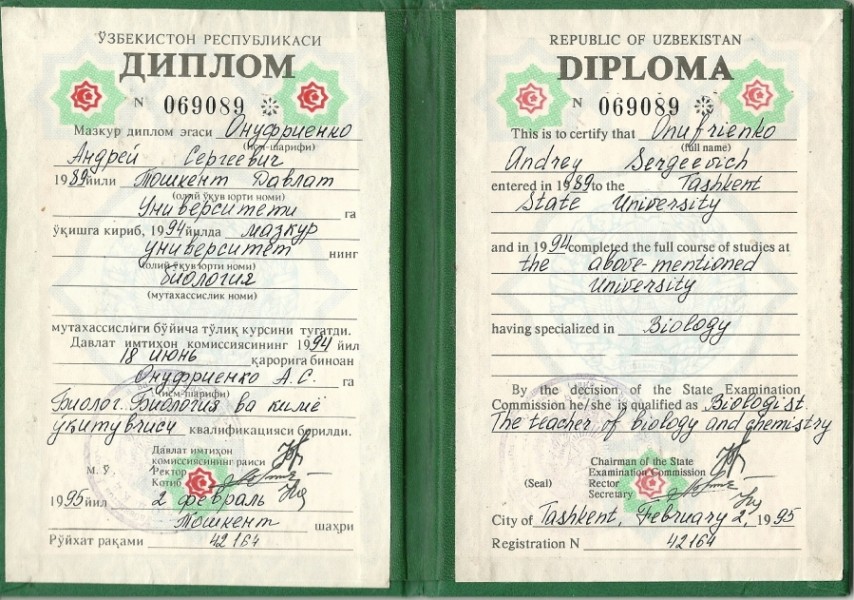 ЎЗБЕКИСТОН РЕСПУБЛИКАСИ
ДИПЛОМ
N 069089
Мазкур диплом эгаси Онуфриенко
(исм-шарифи)
Андрей Сергеевич
1989 йили Тошкент Давлат
(олий ўқув юрти номи)
Университети га
ўқишга кириб, 1994 йилда мазкур
университет нинг
(олий ўқув юрти номи)
биология
(мутахассислик номи)
мутахассислиги бўйича тўлиқ курсини тугатди.
Давлат имтиҳон комиссиясининг 1994 йил
18 июнь қарорига биноан
Онуфриенко А.С. га
(исм-шарифи)
Биолог. Биология ва кимё
ўқитувчиси квалификацияси берилди.
Давлат имтиҳон
комиссиясининг раиси
М. Ў. Ректор
Котиб
1995 йил 2 февраль
Тошкент шаҳри
Рўйхат рақами 42164
REPUBLIC OF UZBEKISTAN
DIPLOMA
N 069089
This is to certify that Onufrienko
(full name)
Andrey Sergeevich
entered in 1989 to the Tashkent
State University
and in 1994 completed the full course of studies at
the above-mentioned
University
having specialized in Biology
By the decision of the State Examination
Commission he/she is qualified as Biologist.
The teacher of biology and chemistry
Chairman of the State
Examination Commission
(Seal) Rector
Secretary
City of Tashkent, February 2, 1995
Registration N 42164